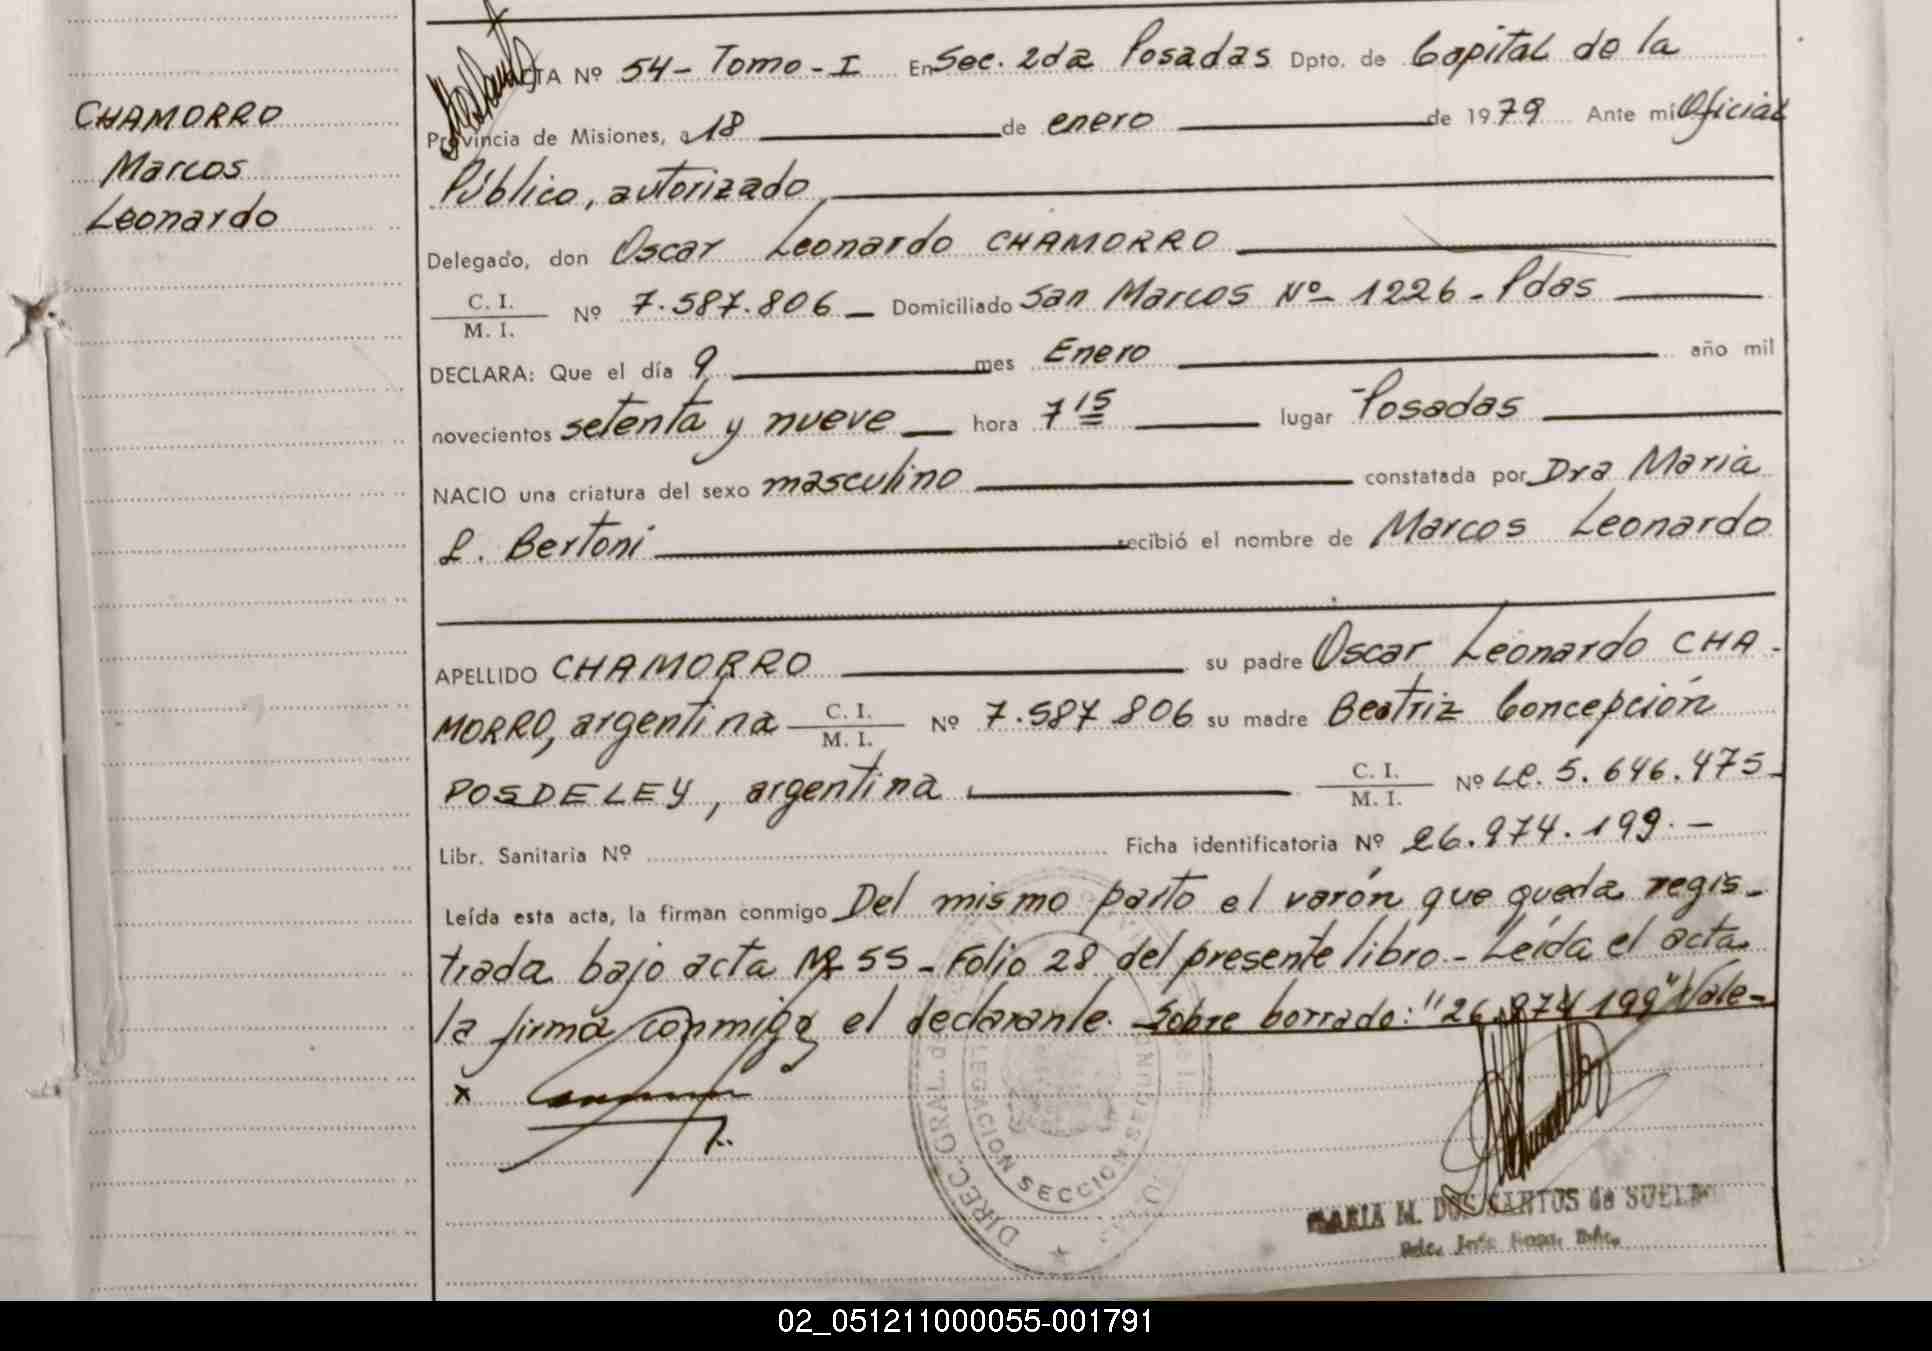 CHAMORRO
Marcos
Leonardo
ACTA Nº 54- Tomo - I En Sec. 2da Posadas Dpto. de Capital de la
Provincia de Misiones, a 18 de enero de 1979 Ante mi Oficial
Público, autorizado
Delegado, don Oscar Leonardo CHAMORRO
C. I.
M. I. Nº 7.587.806 Domiciliado San Marcos Nº 1226 - Pdas
DECLARA: Que el día 9 mes Enero año mil
novecientos setenta y nueve hora 7 15 lugar Posadas
NACIO una criatura del sexo masculino constatada por Dra Maria
L. Bertoni recibió el nombre de Marcos Leonardo
APELLIDO CHAMORRO su padre Oscar Leonardo CHA-
MORRO, argentina C. I. M. I. Nº 7.587.806 su madre Beatriz Concepción
POSDELEY, argentina C. I. M. I. Nº LC. 5.646.475-
Libr. Sanitaria Nº Ficha identificatoria Nº 26.974.199.-
Leída esta acta, la firman conmigo Del mismo parto el varón que queda regis-
trada bajo acta Nº 55 - Folio 28 del presente libro - Leída el acta
la firma conmigo el declarante. Sobre borrado: "26.974 199" Vale-
x
DIREC. GRAL. de
DELEGACION SECCION SEGUNDA
MARIA M. DOS SANTOS de SUELDO
02_051211000055-001791